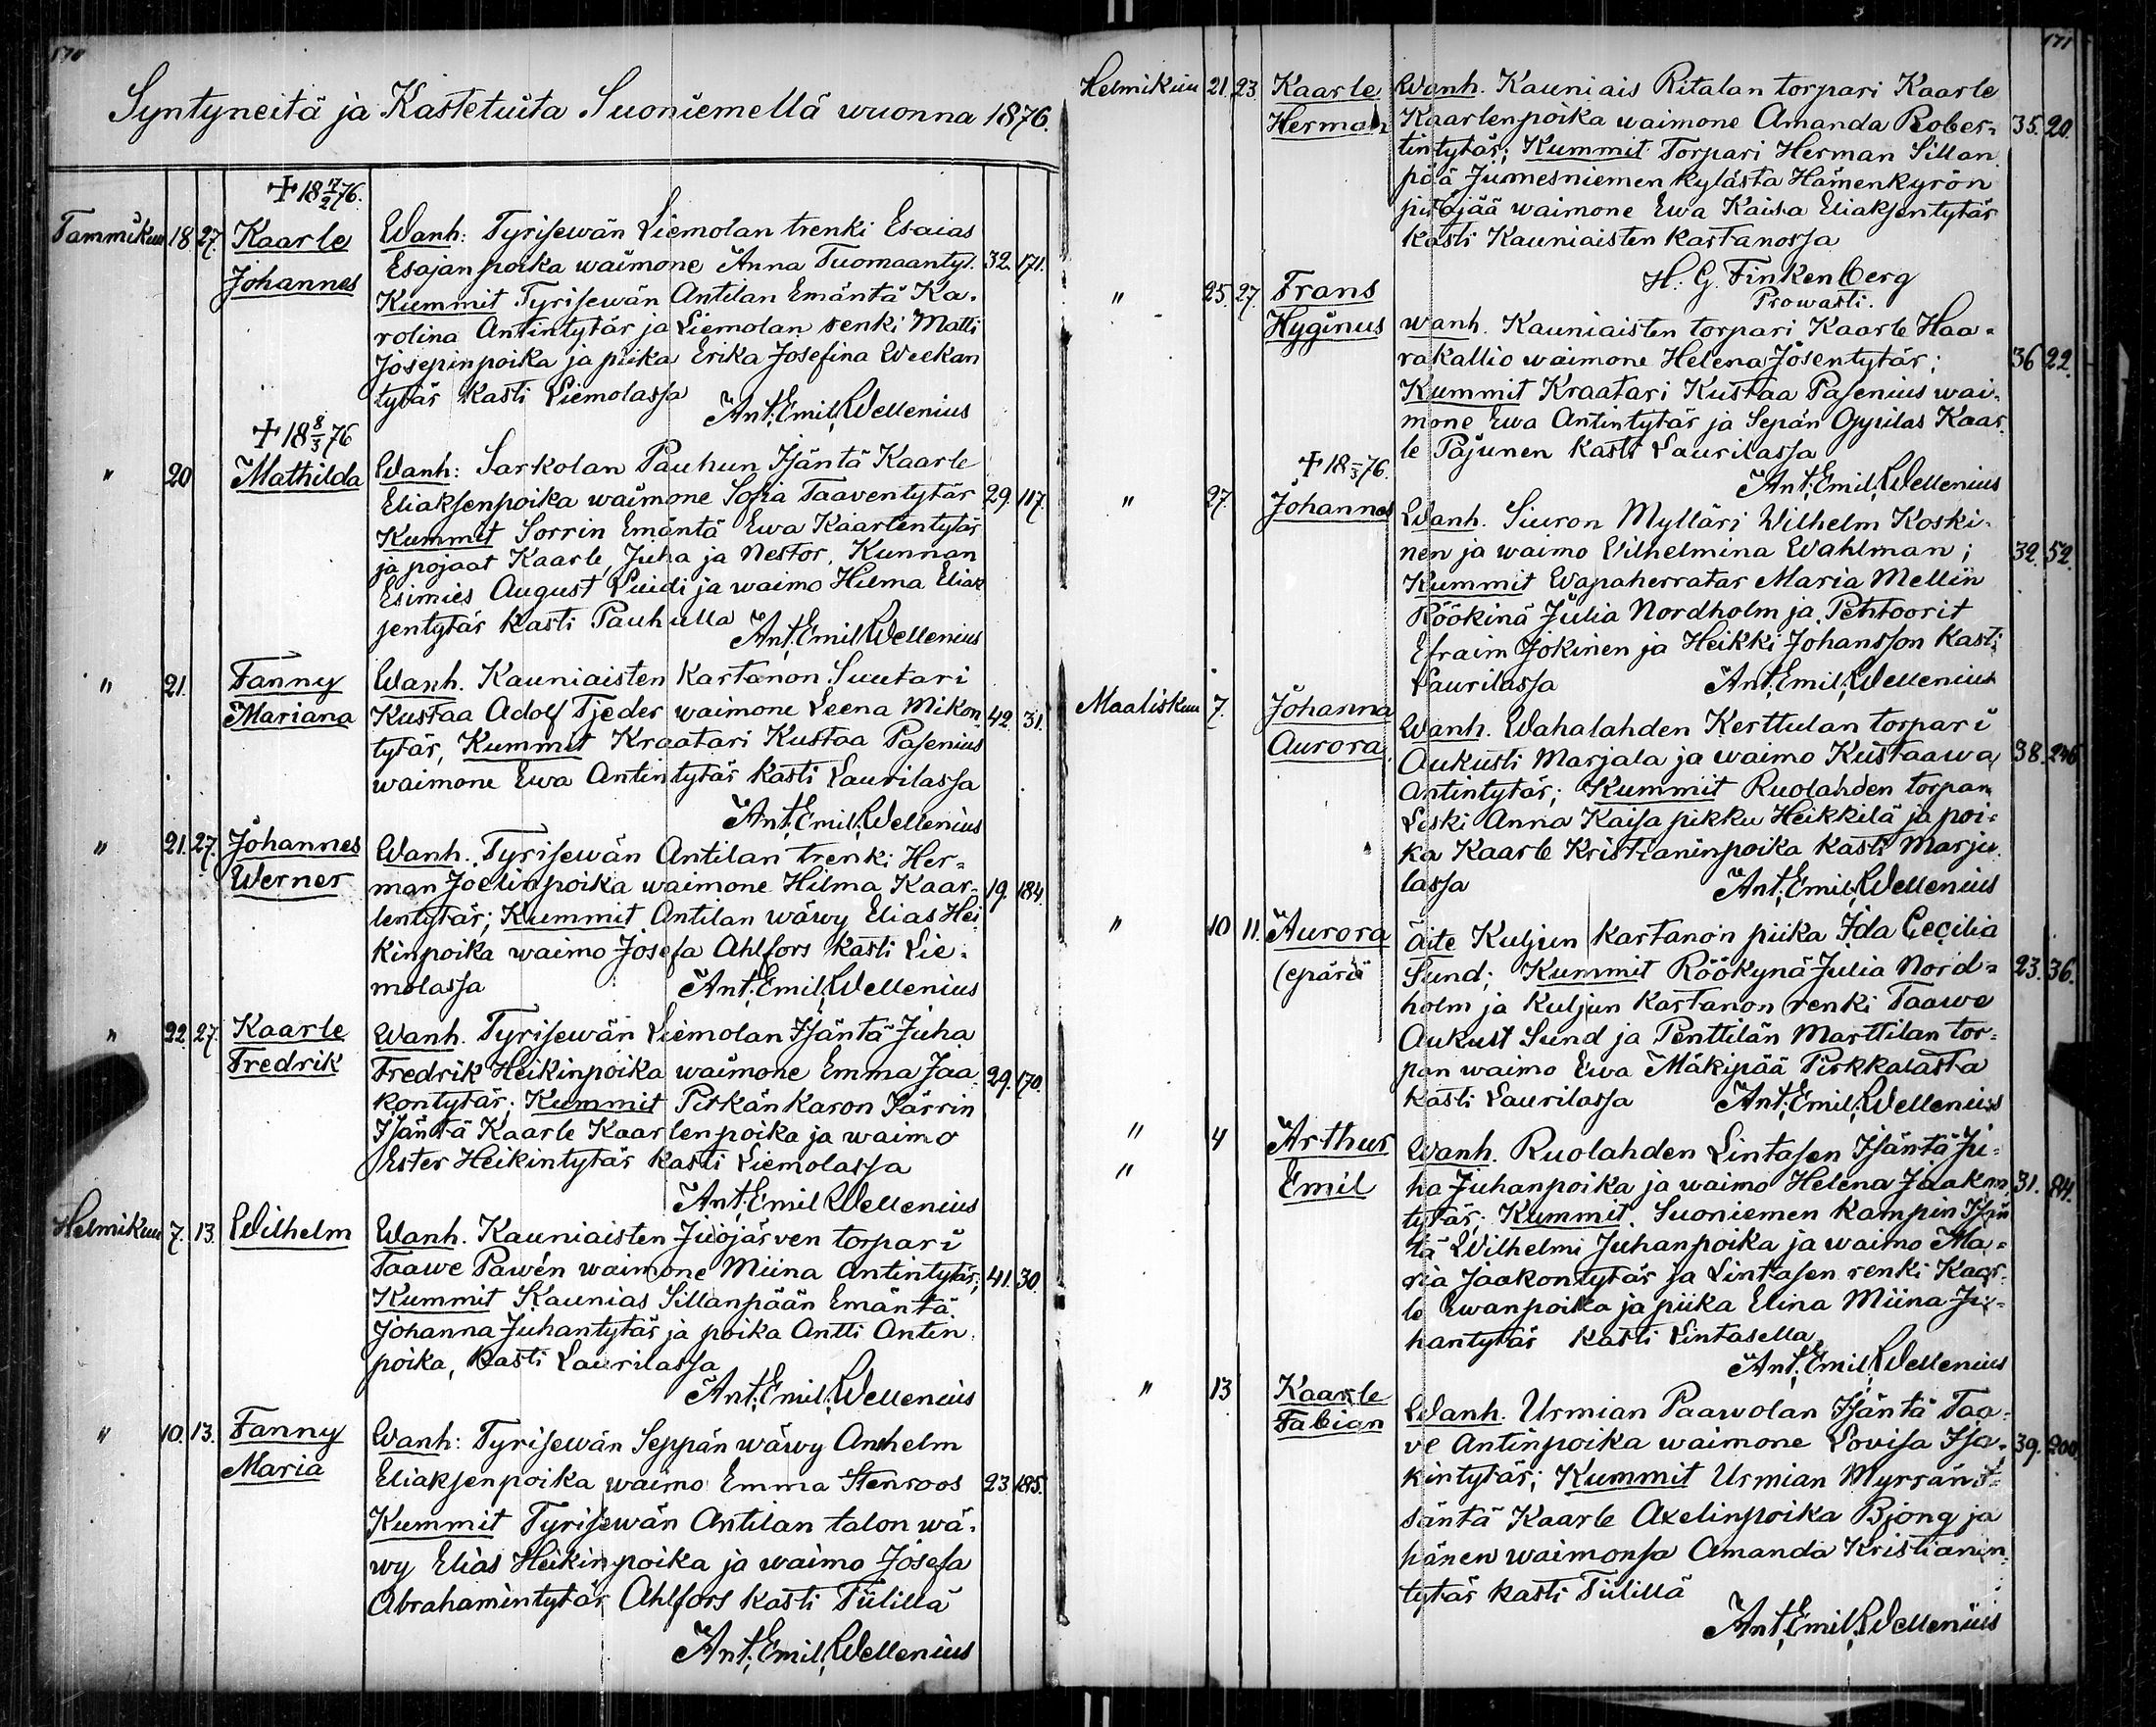 170
Syntyneitä ja Kastetuita Suoniemellä wuonna 1876.
✝ 18 17/2 76.
Tammikuu 18. 27. Kaarle Wanh: Tyrisewän Liemolan trenki Esaias
Johannes Esajanpoika waimone Anna Tuomaantyt. 32. 171.
Kummit Tyrisewän Antilan Emäntä Ka-
rolina Antintytär ja Liemolan renki Matti
Josepinpoika ja piika Erika Josefina Weekan
tytär Kasti Liemolassa
Ant. Emil. Wellenius
✝ 18 8/3 76
" 20 Mathilda Wanh: Sarkolan Pauhun Isäntä Kaarle
Eliaksenpoika waimone Sofia Taaventytär 29. 117.
Kummit Sorrin Emäntä Ewa Kaarlentytär
ja pojaat Kaarle, Juha ja Nestor, Kunnan
Esimies August Luidi ja waimo Hilma Eliak
sentytär Kasti Pauhulla
Ant. Emil Wellenius
" 21. Fanny Wanh. Kauniaisten Kartanon Suutari
Mariana Kustaa Adolf Tjeder waimone Leena Mikon- 42. 31.
tytär, Kummit Kraatari Kustaa Pasenius
waimone Ewa Antintytär Kasti Laurilassa
Ant. Emil. Wellenius
" 21. 27. Johannes Wanh. Tyrisewän Antilan trenki Her-
Werner man Joelinpoika waimone Hilma Kaar- 19. 184.
lentytär; Kummit Antilan wäwy Elias Hei
kinpoika waimo Josefa Ahlfors Kasti Lie-
molassa Ant. Emil Wellenius
" 22. 27. Kaarle Wanh. Tyrisewän Liemolan Isäntä Juha
Fredrik Fredrik Heikinpoika waimone Emma Jaa 29. 170.
kontytär; Kummit Pitkänkaron Järrin
Isäntä Kaarle Kaarlenpoika ja waimo
Ester Heikintytär Kasti Liemolassa
Ant. Emil Wellenius
Helmikuu 7. 13. Wilhelm Wanh. Kauniaisten Juojärven torpari
Taawe Pawén waimone Miina Antintytär; 41. 30.
Kummit Kaunias Sillanpään Emäntä
Johanna Juhantytär ja poika Antti Antin
poika, Kasti Laurilassa
Ant. Emil. Wellenius
" 10. 13. Fanny Wanh: Tyrisewän Seppän wäwy Anshelm
Maria Eliaksenpoika waimo Emma Stenroos 23. 185.
Kummit Tyrisewän Antilan talon wä-
wy Elias Heikinpoika ja waimo Josefa
Abrahamintytär Ahlfors Kasti Tiilillä
Ant. Emil. Wellenius
171
Helmikuu 21. 23. Kaarle Wanh. Kauniais Ritalan torpari Kaarle
Herman Kaarlenpoika waimone Amanda Rober- 35. 20.
tintytär; Kummit Torpari Herman Sillan
pää Jumesniemen kylästä Hämenkyrön
pitäjää waimone Ewa Kaisa Eliaksentytär
Kasti Kauniaisten Kartanossa
H. G. Finkenberg
Prowasti.
" 25. 27. Frans
Hyginus Wanh. Kauniaisten torpari Kaarle Haa-
rakallio waimone Helena Josentytär; 36 22.
Kummit Kraatari Kustaa Pasenius wai-
mone Ewa Antintytär ja Sepän Oppilas Kaar-
le Pajunen Kasti Laurilassa
Ant. Emil. Wellenius
✝ 18 /3 76.
" 27. Johannes Wanh. Siuron Mylläri Wilhelm Koski-
nen ja waimo Wilhelmina Wahlman; 32. 52.
Kummit Wapaherratar Maria Mellin
Röökinä Julia Nordholm ja Pehtoorit
Efraim Jokinen ja Heikki Johansson Kasti
Laurilassa Ant. Emil. Wellenius
Maaliskuu 7. Johanna Wanh. Wahalahden Kerttulan torpari
Aurora Aukusti Marjala ja waimo Kustaawa 38. 246
Antintytär; Kummit Ruolahden torpan
Leski Anna Kaisa pikku Heikkilä ja poi-
ka Kaarle Kristianinpoika Kasti Marju
lassa Ant. Emil. Wellenius
" 10 11. Aurora äite Kuljun Kartanon piika Ida Cecilia
(epärä Sund; Kummit Röökynä Julia Nord- 23. 36.
holm ja Kuljun Kartanon renki Taawe
Aukust Sund ja Penttilän Marttilan tor-
pan waimo Ewa Mäkipää Pirkkalasta
Kasti Laurilassa Ant. Emil. Wellenius
" 4 Arthur Wanh. Ruolahden Lintasen Isäntä Ju-
" Emil ha Juhanpoika ja waimo Helena Jaakon 31. 84.
tytär; Kummit. Suoniemen Kampin Isän
tä Wilhelmi Juhanpoika ja waimo Ma-
ria Jaakontytär ja Lintasen renki Kaar-
le Ewanpoika ja piika Elina Miina Ju-
hantytär Kasti Lintasella
Ant. Emil. Wellenius
" 13 Kaarle
Fabian Wanh. Urmian Paawolan Isäntä Taa-
ve Antinpoika waimone Lovisa Isa- 39. 200.
kintytär; Kummit Urmian Myrrän I-
säntä Kaarle Axelinpoika Bjong ja
hänen waimonsa Amanda Kristianin-
tytär Kasti Tiilillä
Ant. Emil. Wellenius